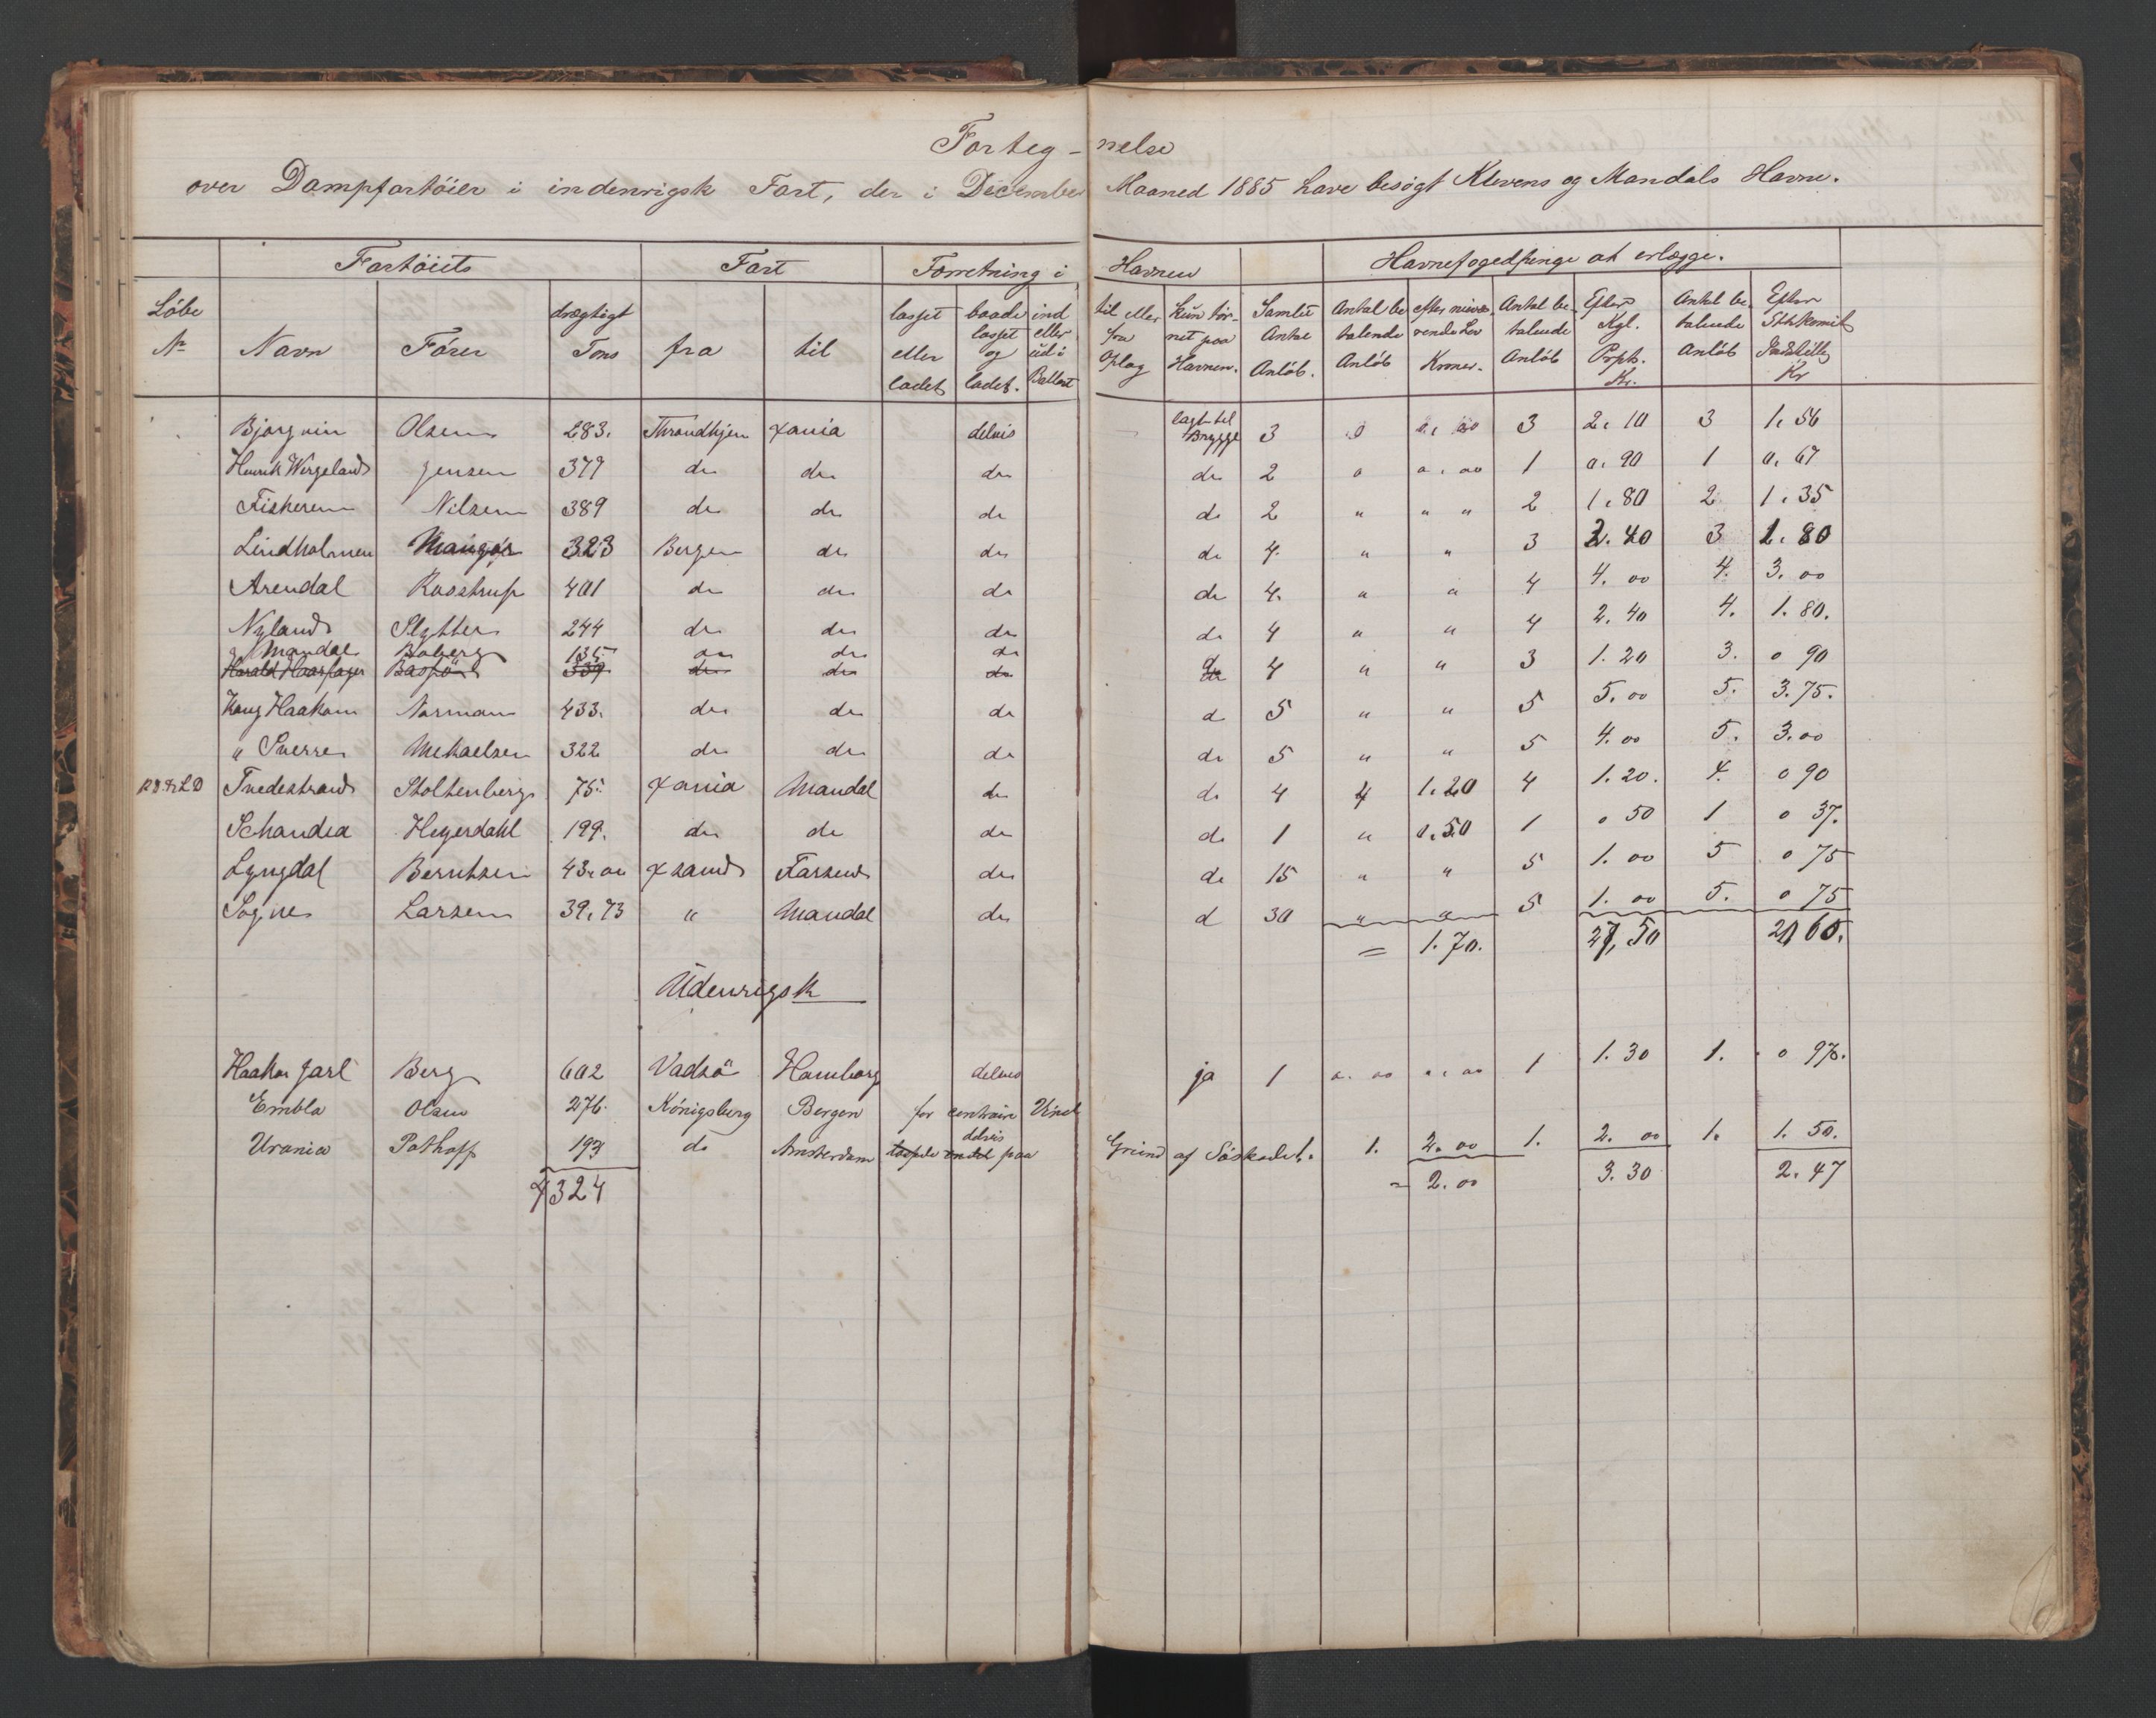 Forteg - nelse
over Dampfartöier i indenrigsk Fart, der i December Maaned 1885 have besögt Klevens og Mandals Havne.
Fartöiets Fart Forretning i Havnen Havnefogedpenge at erlægge.
Löbe No Navn Förer drægtigt Tons fra til losset eller ladet baade losset og ladet. ind eller ud i Ballast til eller fra Oplag kun tör- net paa Havnen. Samlet Antal Anlöb. Antal be talende Anlöb efter nuvæ- rende Lov Kroner. Antal be- talende Anlöb Efter Kgl. Prpt. Kr. Antal be- talende Anlöb Efter Kr
Bjørgvin Olsen 283. Throndhjem Xania delvis lagt til Brygge 3 0 0,00 3 2,10 3 1,56
Henrik Wergeland Jensen 377 do do do do 2 0 0,00 1 0.90 1 0,67
Fiskeren Nilsen 389 do do do do 2 " " " 2 1,80 2 1,35
Lindholmen 323 Bergen do do do 4. " " 3 2.40 3 1.80
Arendal Rosstrup 401 do do do do 4. " " 4 4.00 4. 3.00
Nyland Slytter 244 do do do do 4 " " 4 2.40 4. 1.80.
Mandal Boberg 135 do do do
Harald Haarfager 339 do do do do 4 " " 3 1.20 3. 0 90
Kong Haakon Norman 433. do do do d 5 " " 5 5.00 5. 3.75.
" Sverre Mekaelsen 322 do do do do 5 " " 5 4.00 5. 3.00
Tvedestrand Stoltenberg 75. Xania Mandal do do 4 4 1.20 4 1.20. 4. 0 90
Schandia Heyerdahl 199. do do do do 1 " 0.50 1 0 50 1 0 37.
Lyngdal Berntsen 43.00 Xsand Farsund do do 15 " " 5 1.00 5 0 75
Sogne Larsen 39,73 " Mandal do d 30 " " 5 1.00 5. 0 75
= 1.70. 27,50 2060.
Udenrigsk
Haakon Jarl Berg 602 Vadsö Hamborg delvis ja 1 0.00 0,00 1 1.30 1. 0 97.
Embla Olsen 276. Königsberg Bergen for contrair Vind
Urania Pothoff 193 do Amsterdam delvis paa Grund af Söskade. 1. 2.00 1. 2.00 1. 1.50.
4324 = 2.00 3.30 2.47